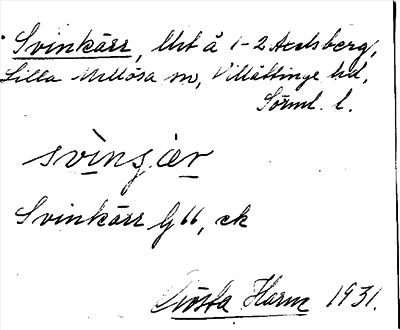 Svinkärr, Urt å 1-2 Axelsberg,
Lilla Mellösa sn, Villåttinge hd,
Sörml. l.
svìnɟær
Svinkärr G 66, ek
Gösta Harm 1931.